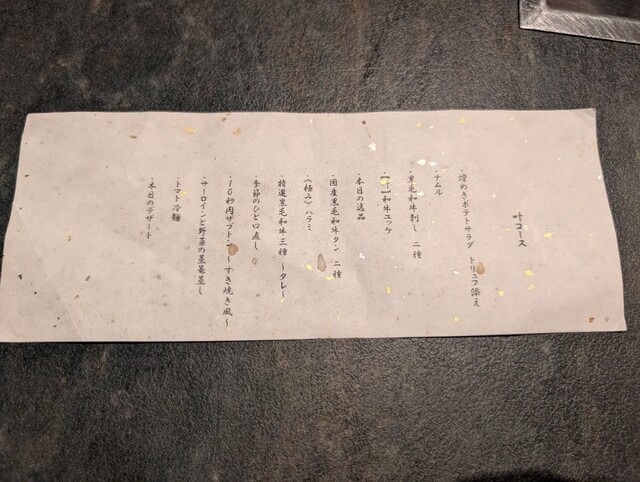 叶コース
・煌めきポテトサラダ トリュフ添え
・ナムル
・黒毛和牛刺し 二種
・【叶】和牛ユッケ
・本日の逸品
・国産黒毛和牛タン 二種
・《極み》ハラミ
・特選黒毛和牛三種 〜タレ〜
・季節のひと口直し
・10秒肉ザブトン 〜すき焼き風〜
・サーロインと野菜の蒸籠蒸し
・トマト冷麺
・本日のデザート